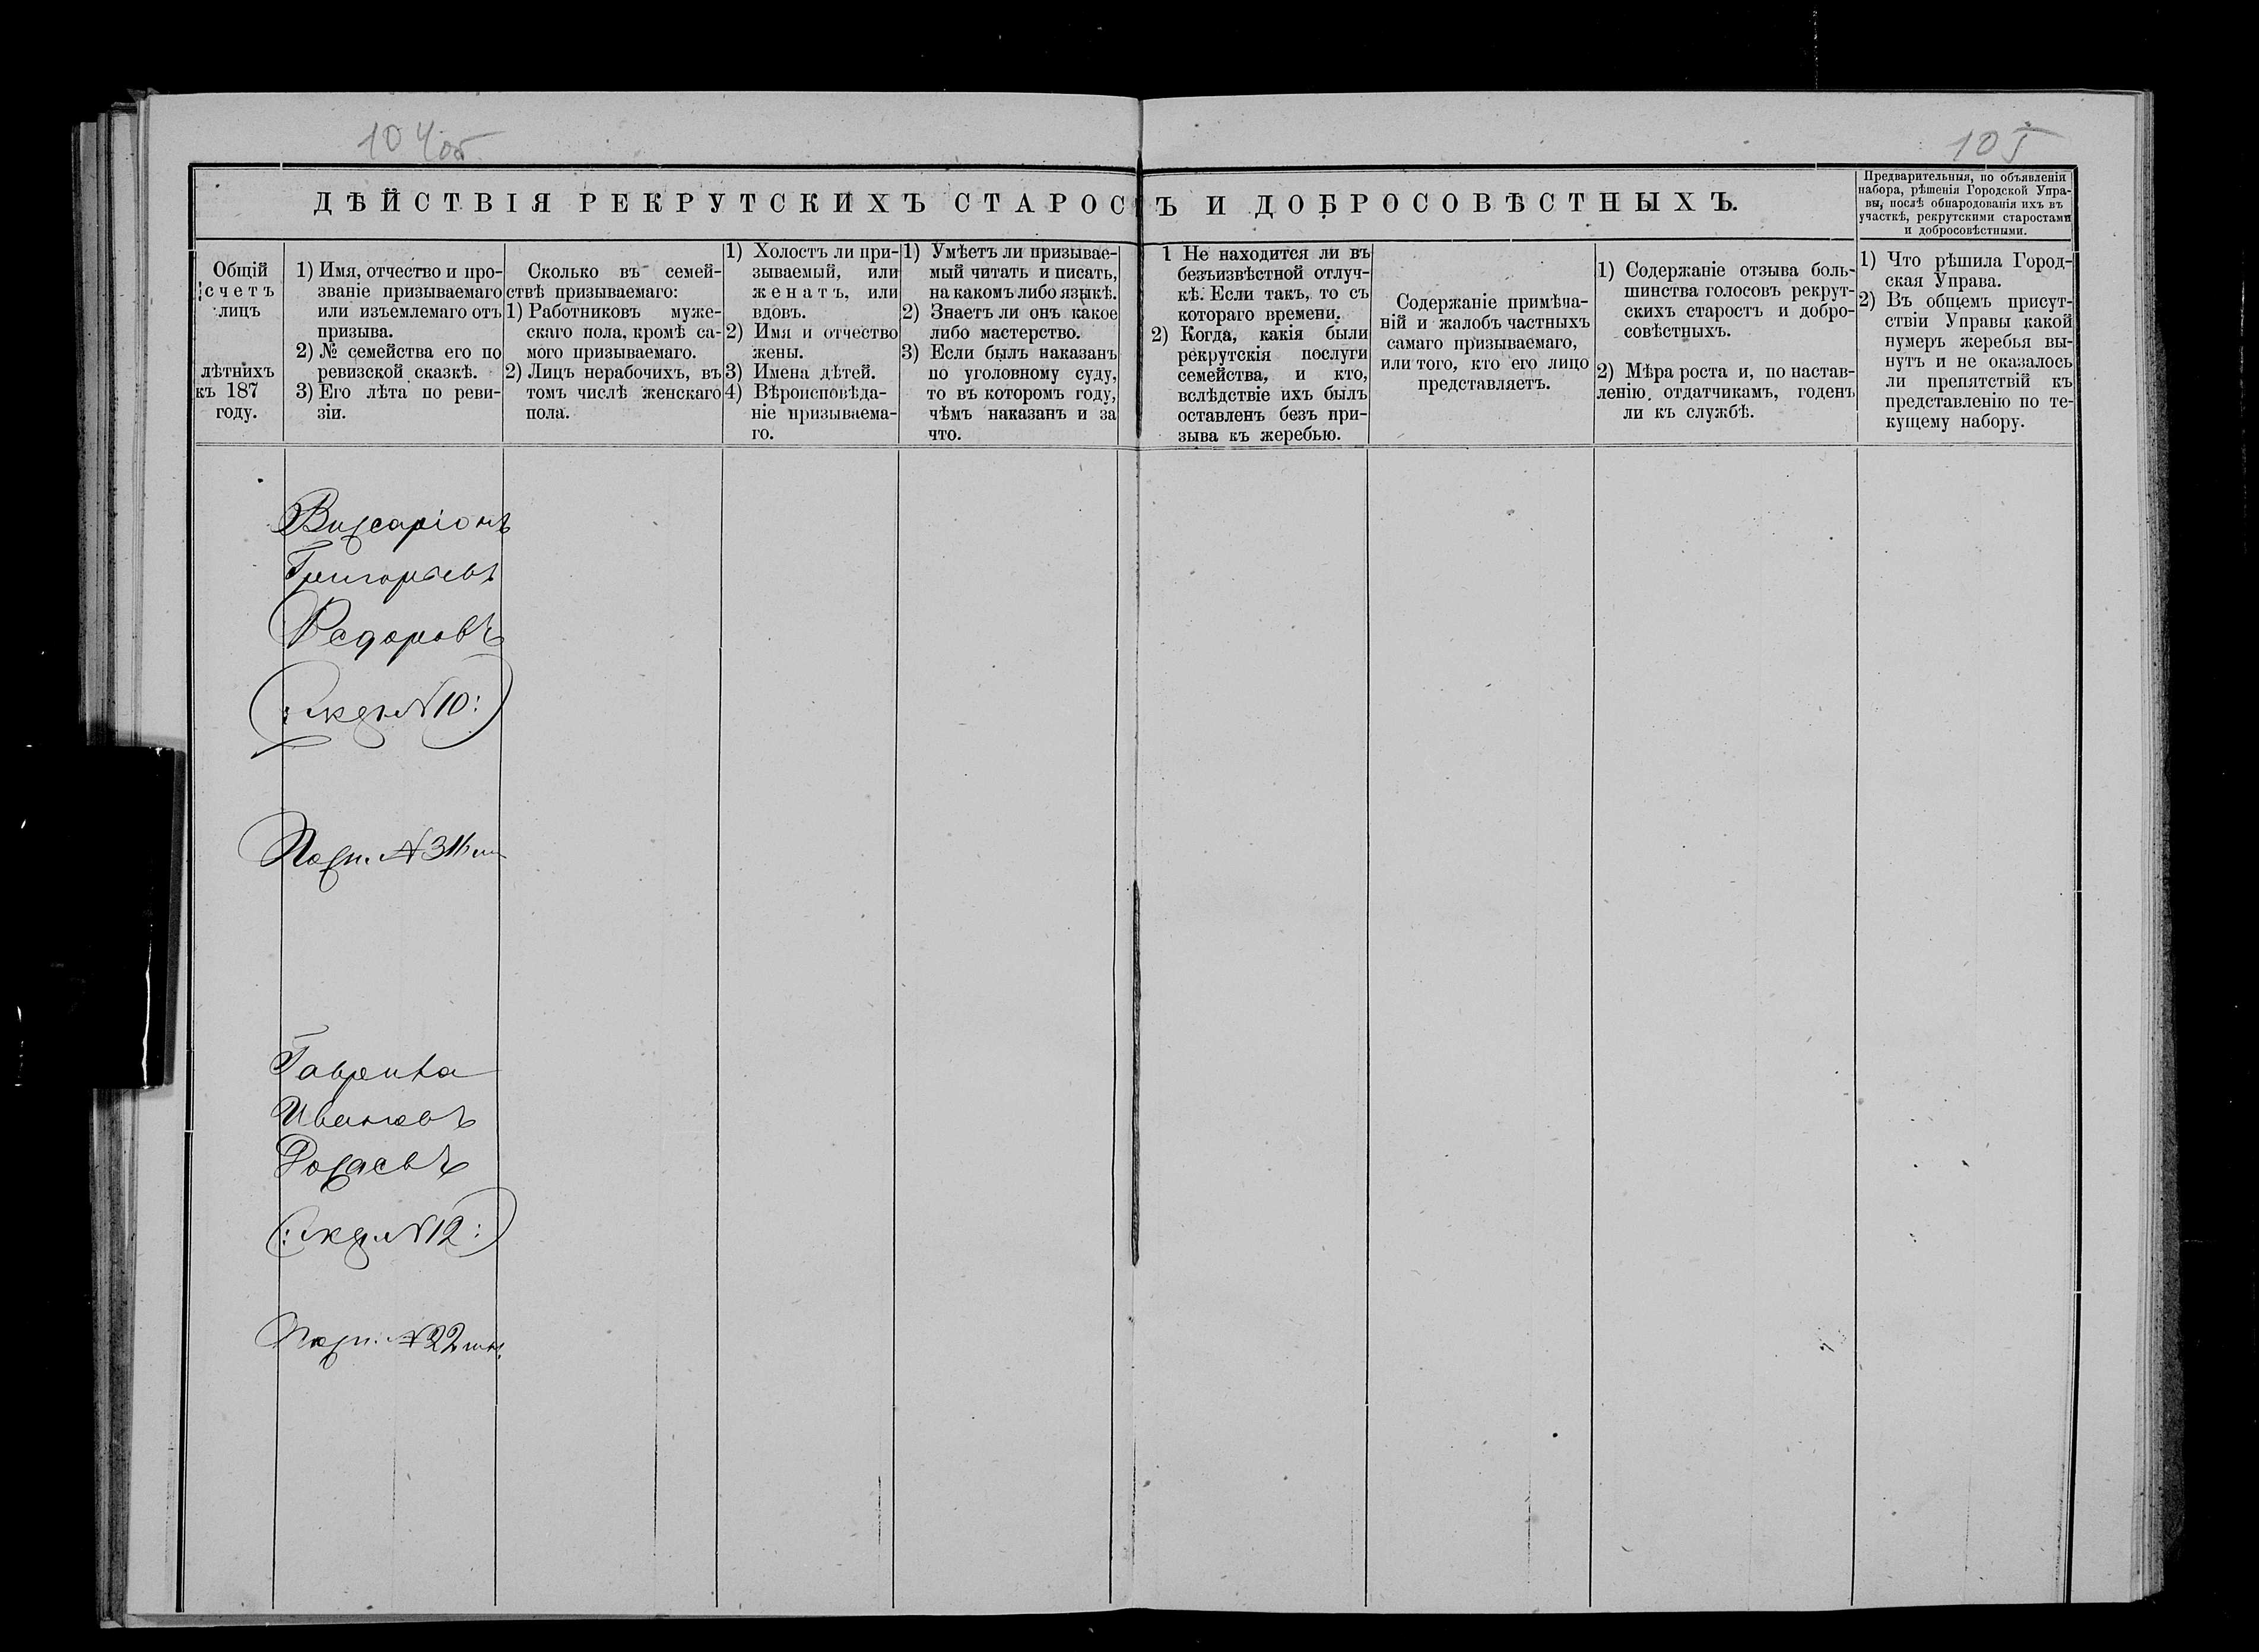 104об
105
ДѢЙСТВІЯ РЕКРУТСКИХЪ СТАРОСТЪ И ДОБРОСОВѢСТНЫХЪ.
Предварительныя, по объявленіи
набора, рѣшенія Городской Упра-
вы, послѣ обнародованія ихъ въ
участкѣ, рекрутскими старостами
и добросовѣстными.
Общій
счетъ
лицъ
лѣтнихъ
къ 187
году.
1) Имя, отчество и про-
званіе призываемаго
или изъемлемаго отъ
призыва.
2) № семейства его по
ревизской сказкѣ.
3) Его лѣта по реви-
зіи.
Сколько въ семей-
ствѣ призываемаго:
1) Работниковъ муже-
скаго пола, кромѣ са-
мого призываемаго.
2) Лицъ нерабочихъ, въ
томъ числѣ женскаго
пола.
1) Холостъ ли при-
зываемый, или
женатъ, или
вдовъ.
2) Имя и отчество
жены.
3) Имена дѣтей.
4) Вѣроисповѣда-
ніе призываема-
го.
1) Умѣетъ ли призывае-
мый читать и писать,
на какомъ либо языкѣ.
2) Знаетъ ли онъ какое
либо мастерство.
3) Если былъ наказанъ
по уголовному суду,
то въ которомъ году,
чѣмъ наказанъ и за
что.
1 Не находится ли въ
безъизвѣстной отлуч-
кѣ. Если такъ, то съ
котораго времени.
2) Когда, какія были
рекрутскія послуги
семейства, и кто,
вслѣдствіе ихъ былъ
оставленъ безъ при-
зыва къ жеребью.
Содержаніе примѣча-
ній и жалобъ частныхъ
самаго призываемаго,
или того, кто его лицо
представляетъ.
1) Содержаніе отзыва боль-
шинства голосовъ рекрут-
скихъ старостъ и добро-
совѣстныхъ.
2) Мѣра роста и, по настав-
ленію отдатчикамъ, годенъ
ли къ службѣ.
1) Что рѣшила Город-
ская Управа.
2) Въ общемъ присут-
ствіи Управы какой
нумеръ жеребья вы-
нутъ и не оказалось
ли препятствій къ
представленію по те-
кущему набору.
Виссаріонъ
Григорьевъ
Федоровъ
№ 10:)
№
Гаврила
Ивановъ
№ 12:)
№ 22